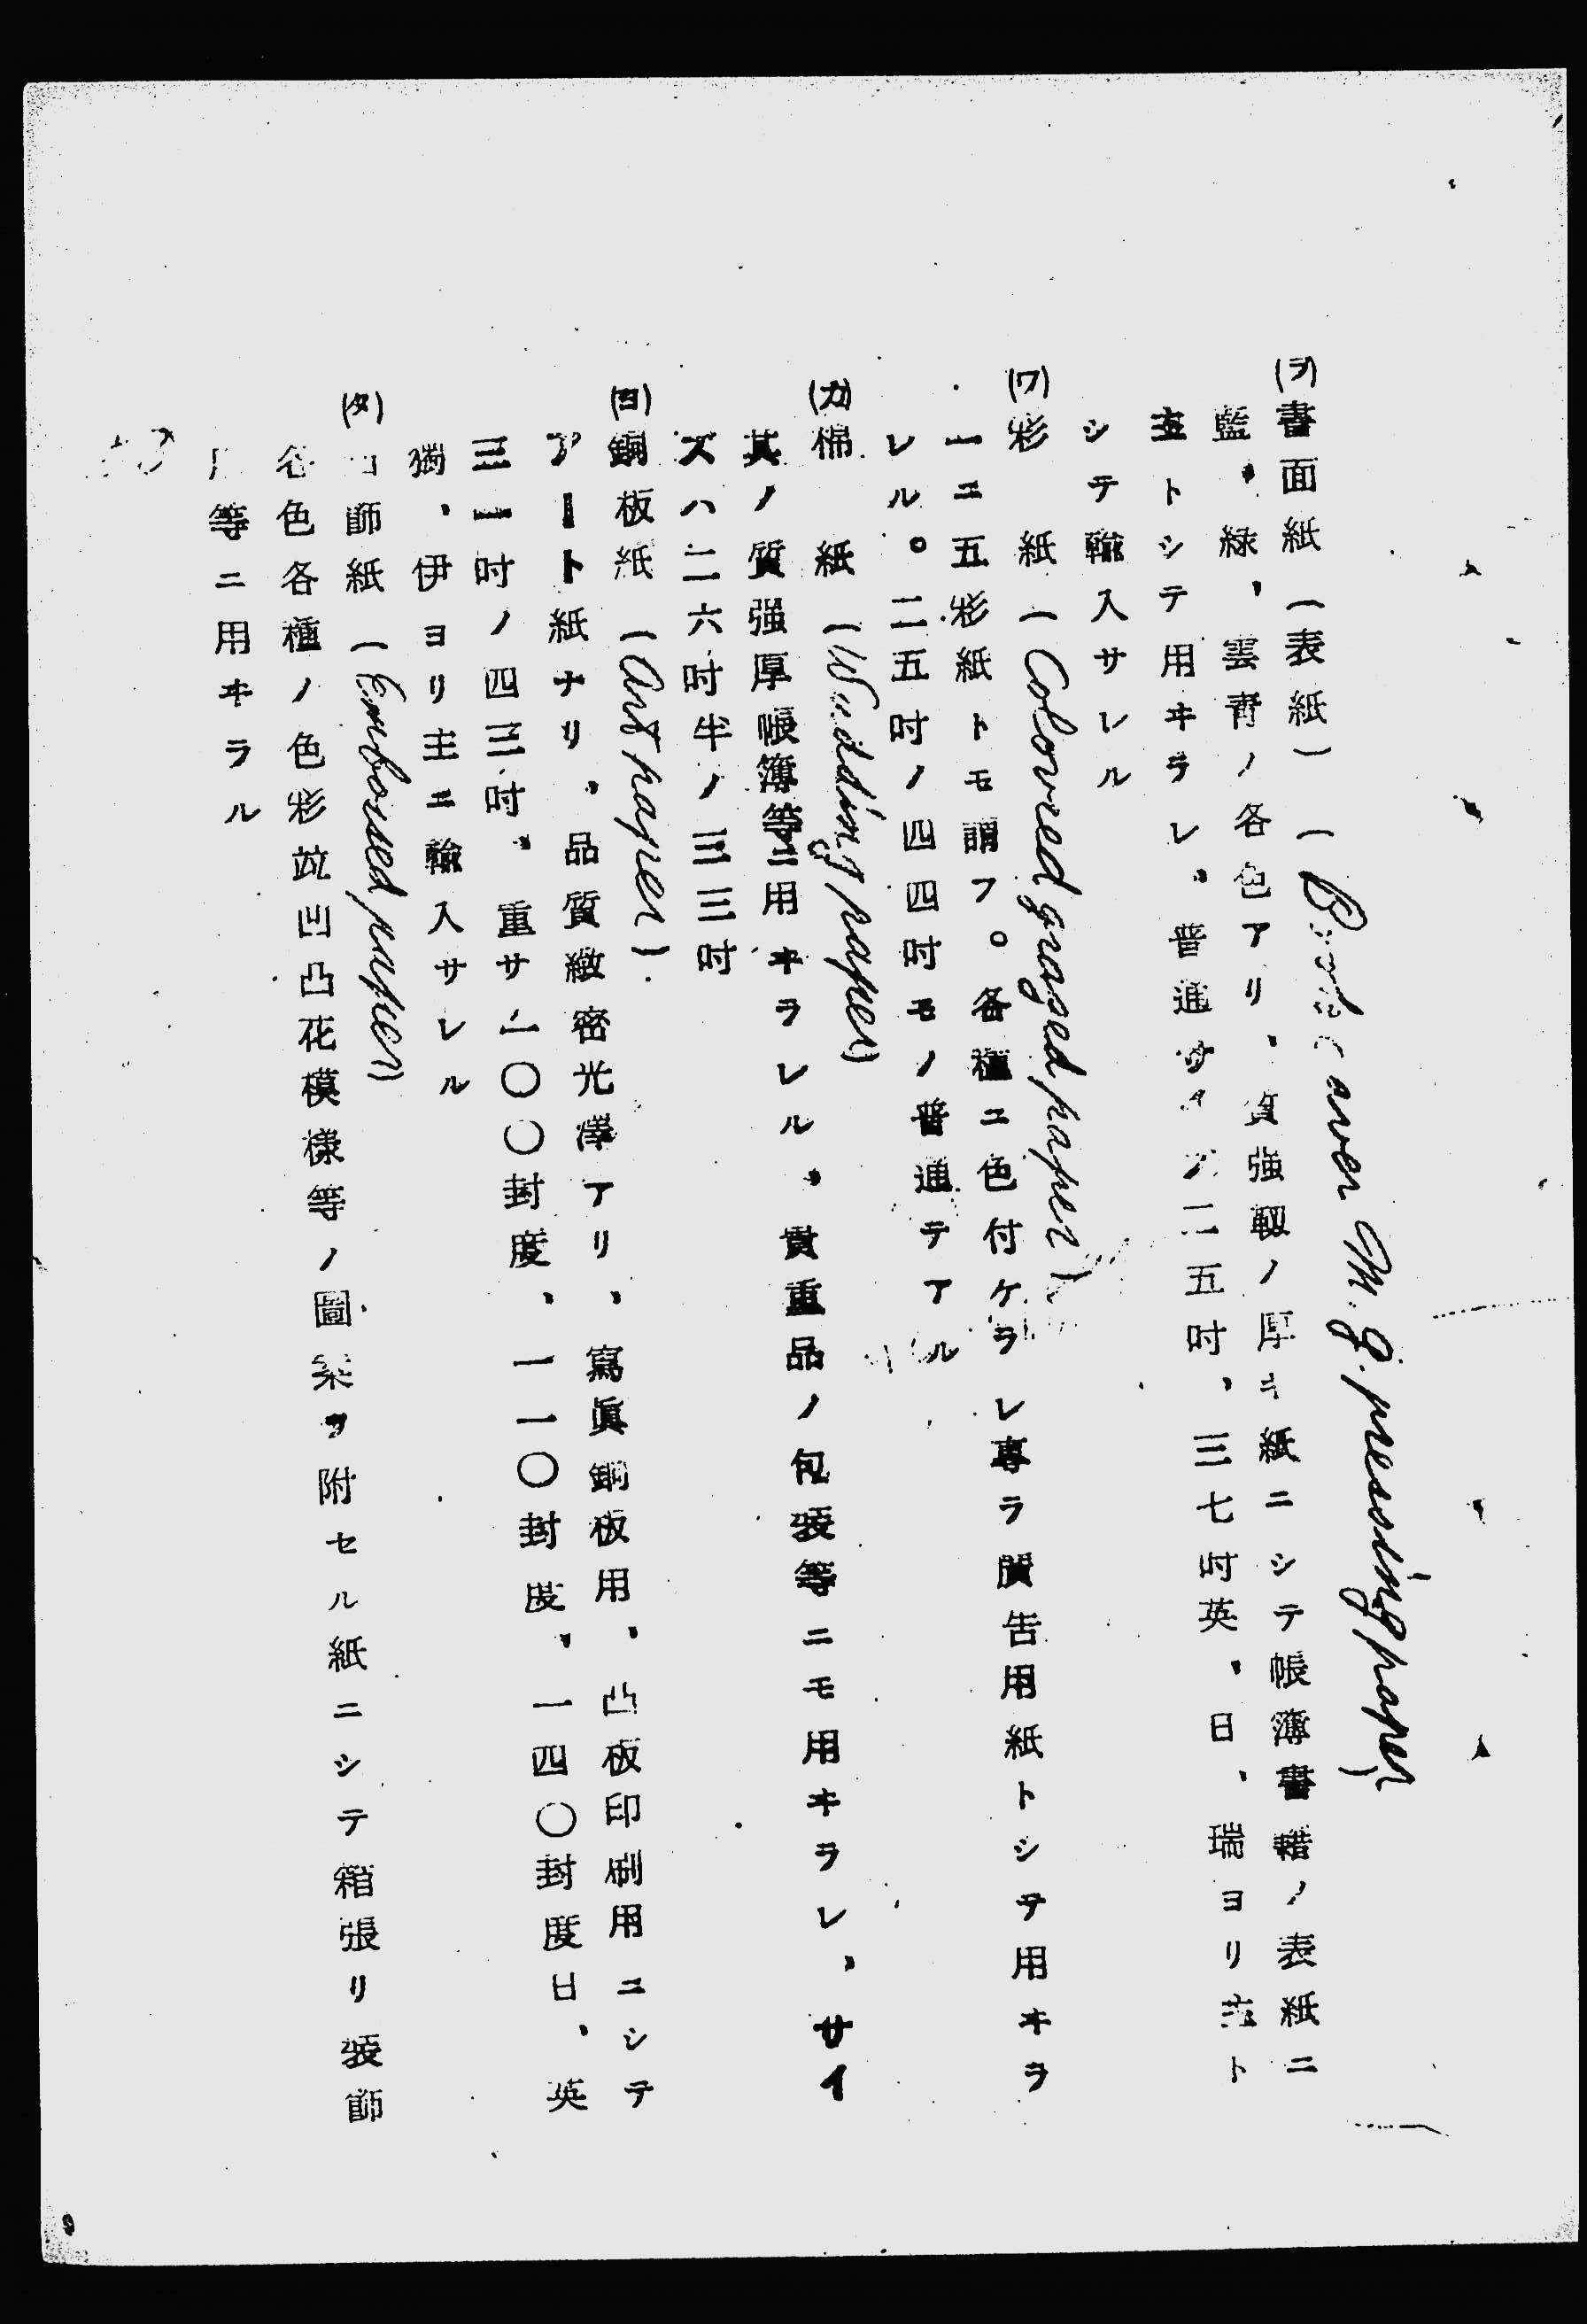 (ヲ)書面紙(表紙)( Book cover M.G. pressing paper)
藍、緑、雲青ノ各色アリ、質强靱ノ厚キ紙ニシテ帳簿書籍ノ表紙ニ
主トシテ用ヰラレ、普通サイズ二五吋、三七吋英、日、瑞ヨリ主ト
シテ輸入サレル
(ワ)彩 紙(Coloured graged paper)
一ニ五彩紙トモ謂フ。各種ニ色付ケラレ專ラ廣告用紙トシテ用ヰラ
レル。二五吋ノ四四吋モノ普通テアル
(カ)棉 紙(Wudding paper)
其ノ質强厚帳簿等ニ用ヰラレル、貴重品ノ包裝等ニモ用ヰラレ、サイ
ズハ二六吋半ノ三三吋
(ヨ)銅板紙(Art paper)
アート紙ナリ、品質緻密光澤アリ、寫眞銅板用、凸板印刷用ニシテ
三一吋ノ四三吋、重サ一〇〇封度、一一〇封度、一四〇封度日、英
獨、伊ヨリ主ニ輸入サレル
(タ)飾紙(Embossed paper)
各色各種ノ色彩竝凹凸花模樣等ノ圖案ヲ附セル紙ニシテ箱張リ裝飾
等ニ用ヰラル